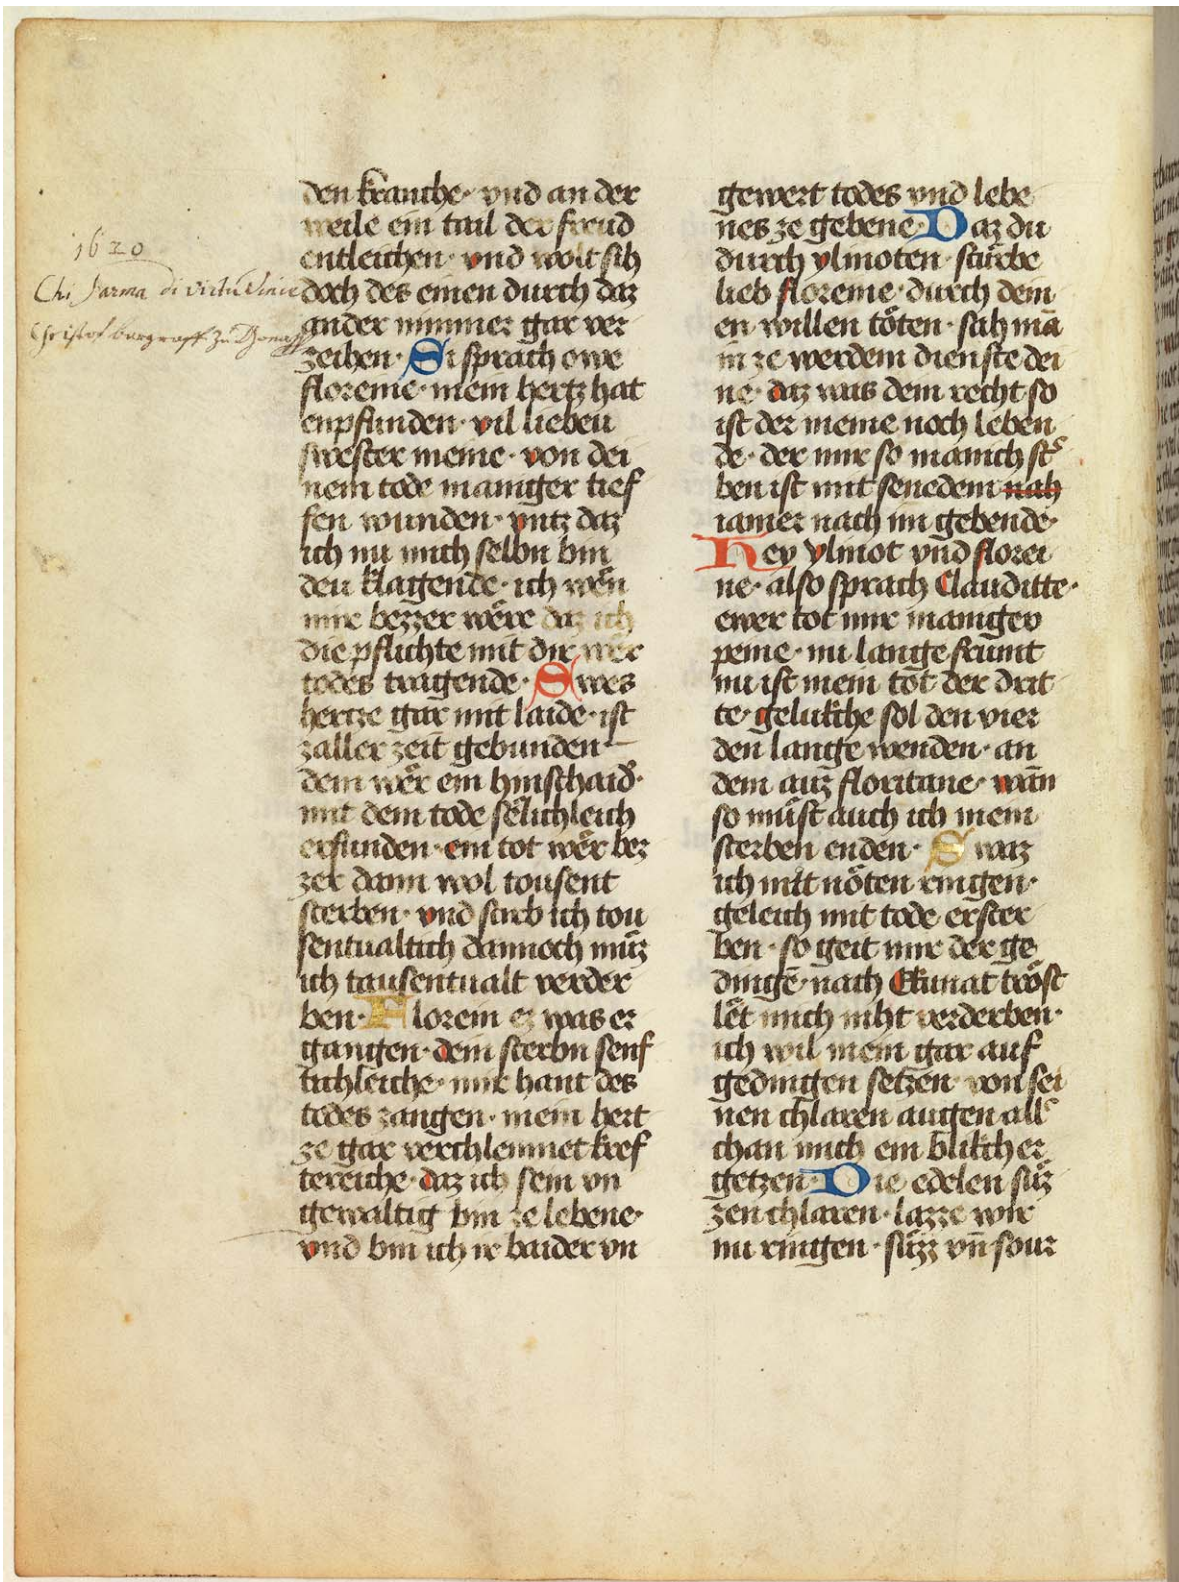 1620
Chi s'arma di virtu vince
Christof burgraff zu Dona
den kranche· vnd an der
weile ein tail der freud
entleichen· vnd wolt sih
doch des einen durch daz
ander nimmer gar ver
zeihen· Si sprach owe
floreine· mein hertz hat
enpfunden· vil lieben
swester meine· von dei
nem tode maniger tief
fen wunden· vntz daz
ich nu mich selbn bin
den klagende· ich wën
mir bezzer wëre daz ich
die pflichte mit dir wër
todes tragende· Swes
hertze gar mit laide· ist
zaller zeit gebunden
dem wër ein hinschaid᾽·
mit dem tode sëlichleich
erfunden· ein tot wër bez
zer dann wol tousent
sterben· vnd starb ich tou
sentualtich dannoch müz
ich tausentualt verder
ben· Florein ez was er
gangen· dein sterbn senf
tichleiche· mir hant des
todes zangen· mein hert
ze gar verchlemmet kref
tereiche· daz ich sein vn
gewaltig bin ze lebene·
vnd bin ich ir baider vn
gewert todes vnd lebe
nes ze gebene· Daz du
durch ylinoten· stürbe
lieb floreine· durch dein
en willen töten· sah mā
in ze werdem dienste dei
ne· daz was dem recht so
ist der meine noch leben
de· der mir so manich st᾽
ben ist mit senedem nah
iamer nach im gebende·
Hey ylinot vnd florei
ne· also sprach Clauditte·
ewer tot mir manigev
peine· nu lange frumt
nu ist mein tot der drit
te· gelukche sol den vier
den lange wenden· an
dem auz floritane· wān
so müst auch ich mein
sterben enden· Swaz
ich mit nöten ringen·
geleich mit tode erster
ben· so geit mir der ge
dinge· nach Ekunat tröst
lët mich niht verderben·
ich wil mein gar auf
gedingen setzen von sei
nen chlaren augen all᾽
chan mich ein blikch er
getzen· Die edelen süz
zen chlaren· lazze wir
nu ringen· süzz vn̄ sour